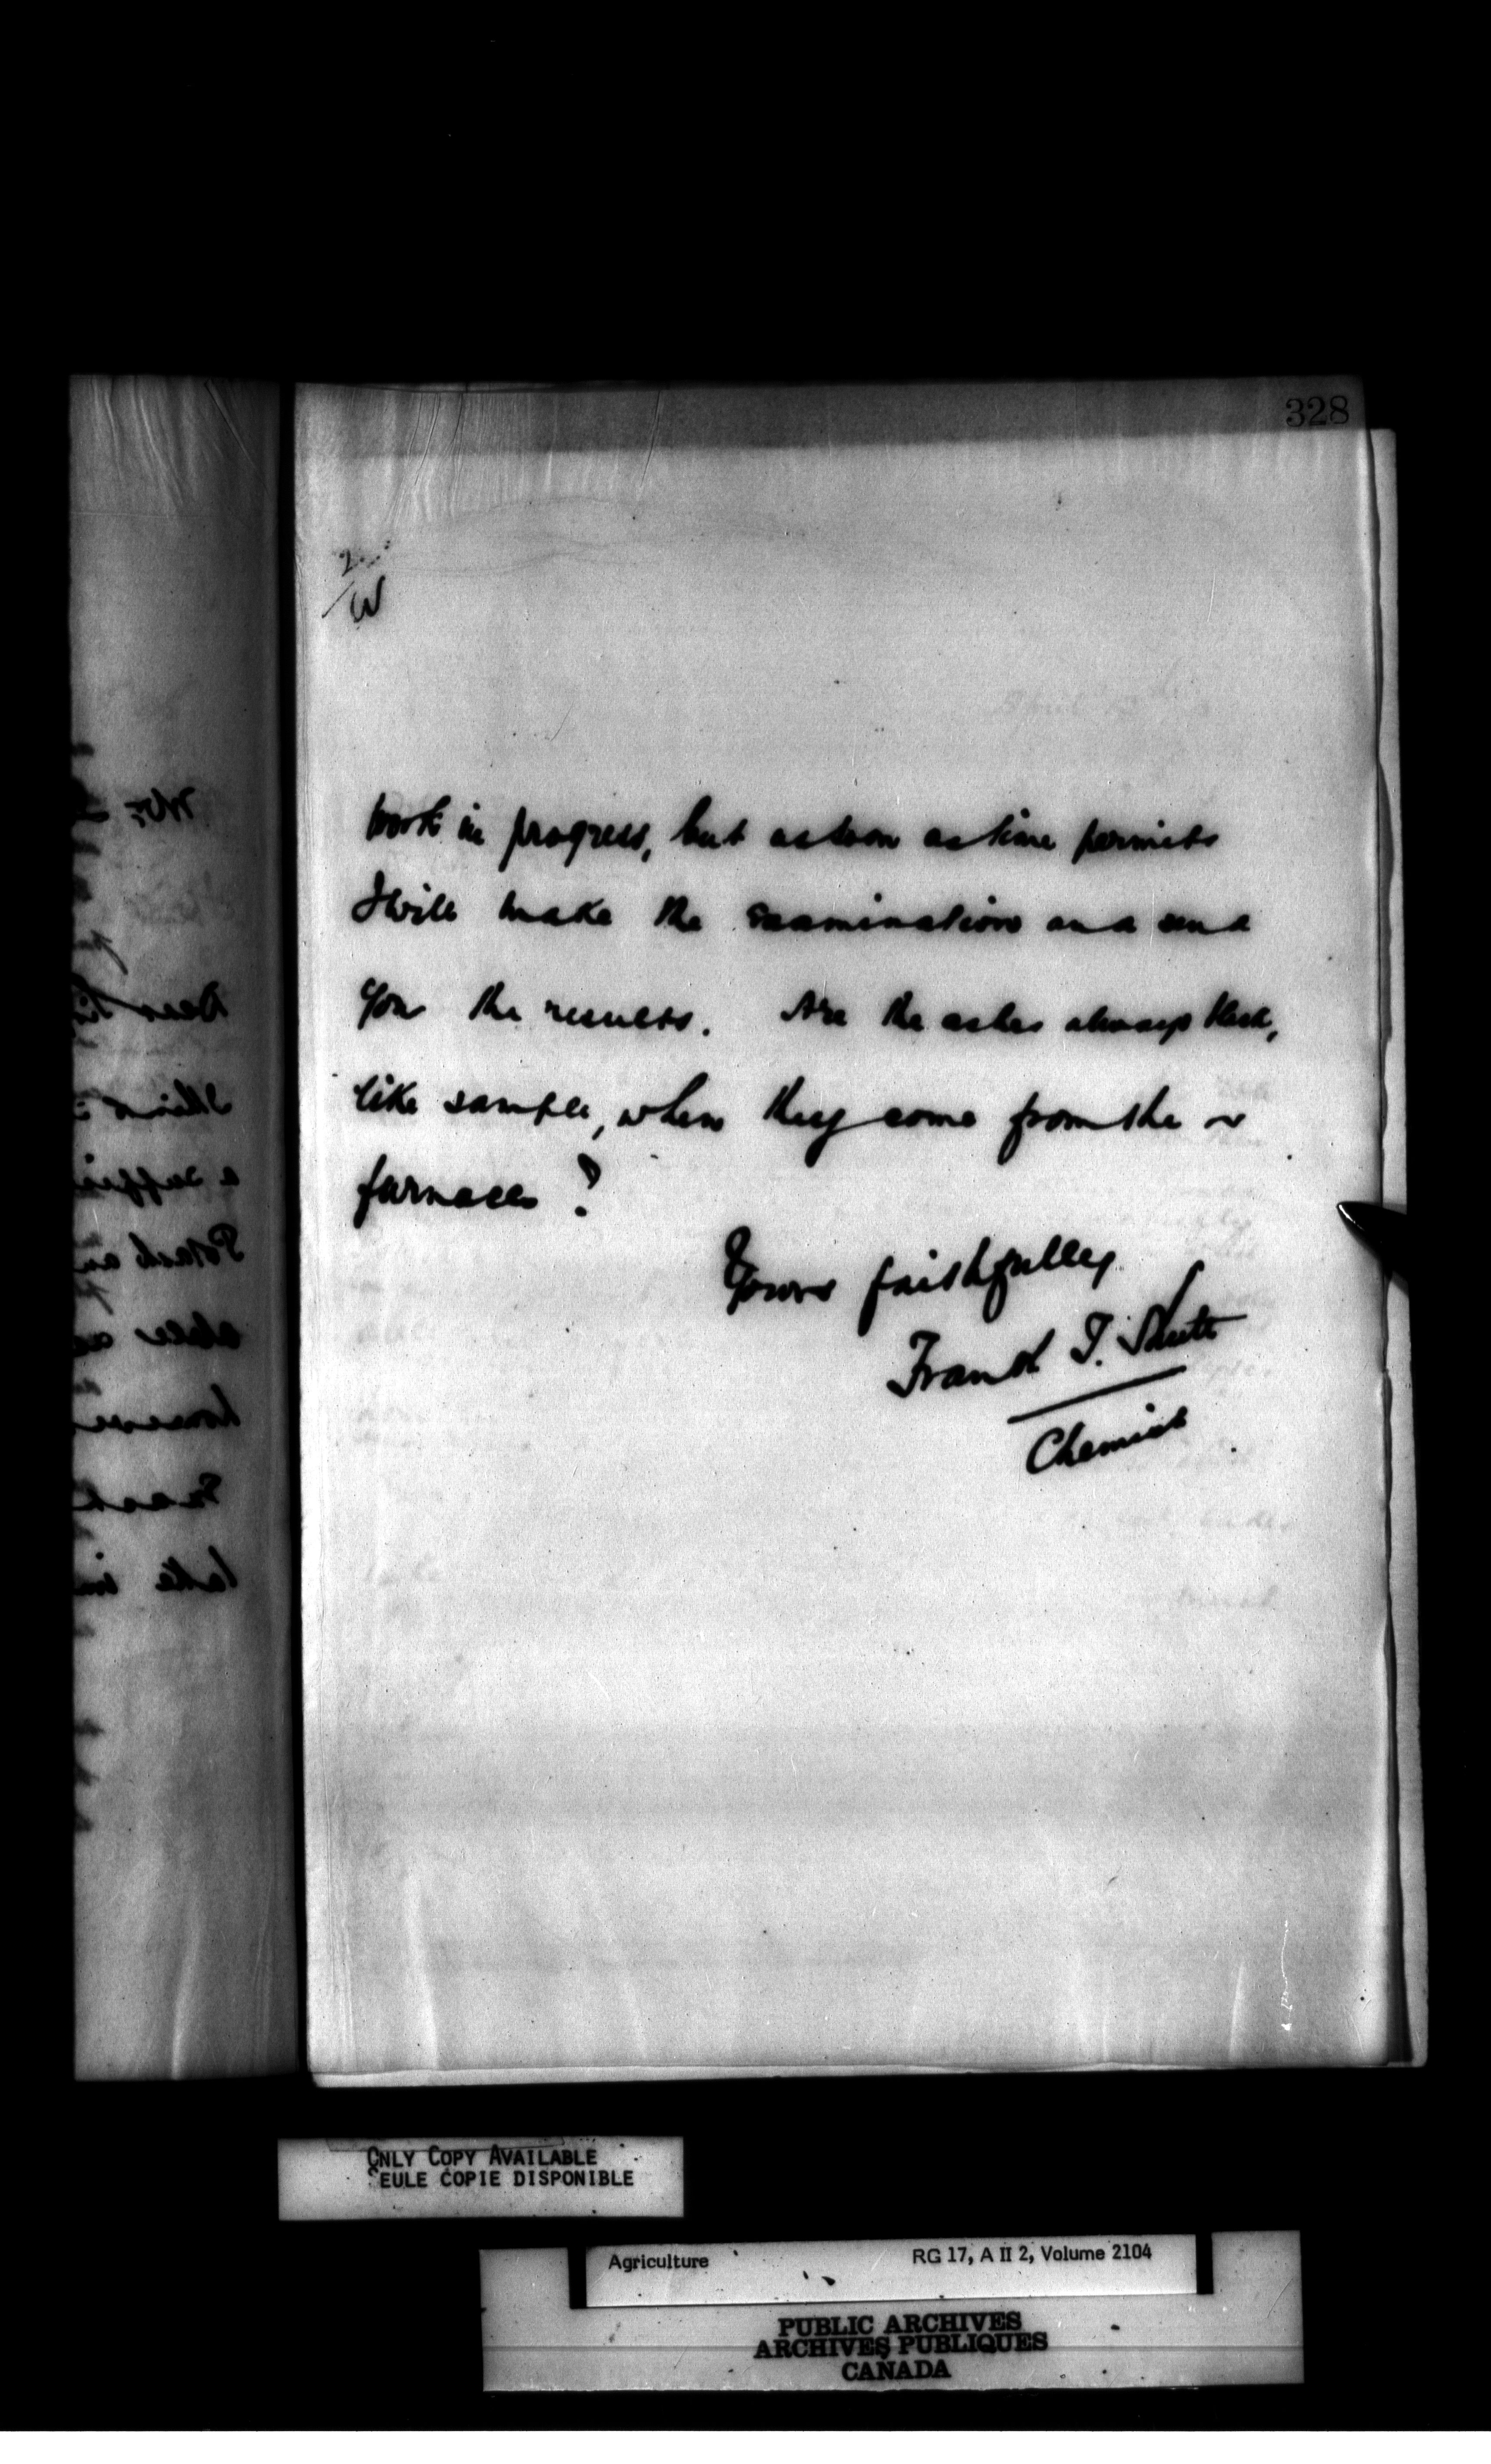 328
2
W
work in progress, but as soon as time permits
I will make the examination and send
you the results. Are the ashes always black,
like sample, when they come from the ~
furnaces ?
Yours faithfully
Frank T. Shutt
Chemist
ONLY COPY AVAILABLE
SEULE COPIE DISPONIBLE
Agriculture RG 17, A II 2, Volume 2104
PUBLIC ARCHIVES
ARCHIVES PUBLIQUES
CANADA